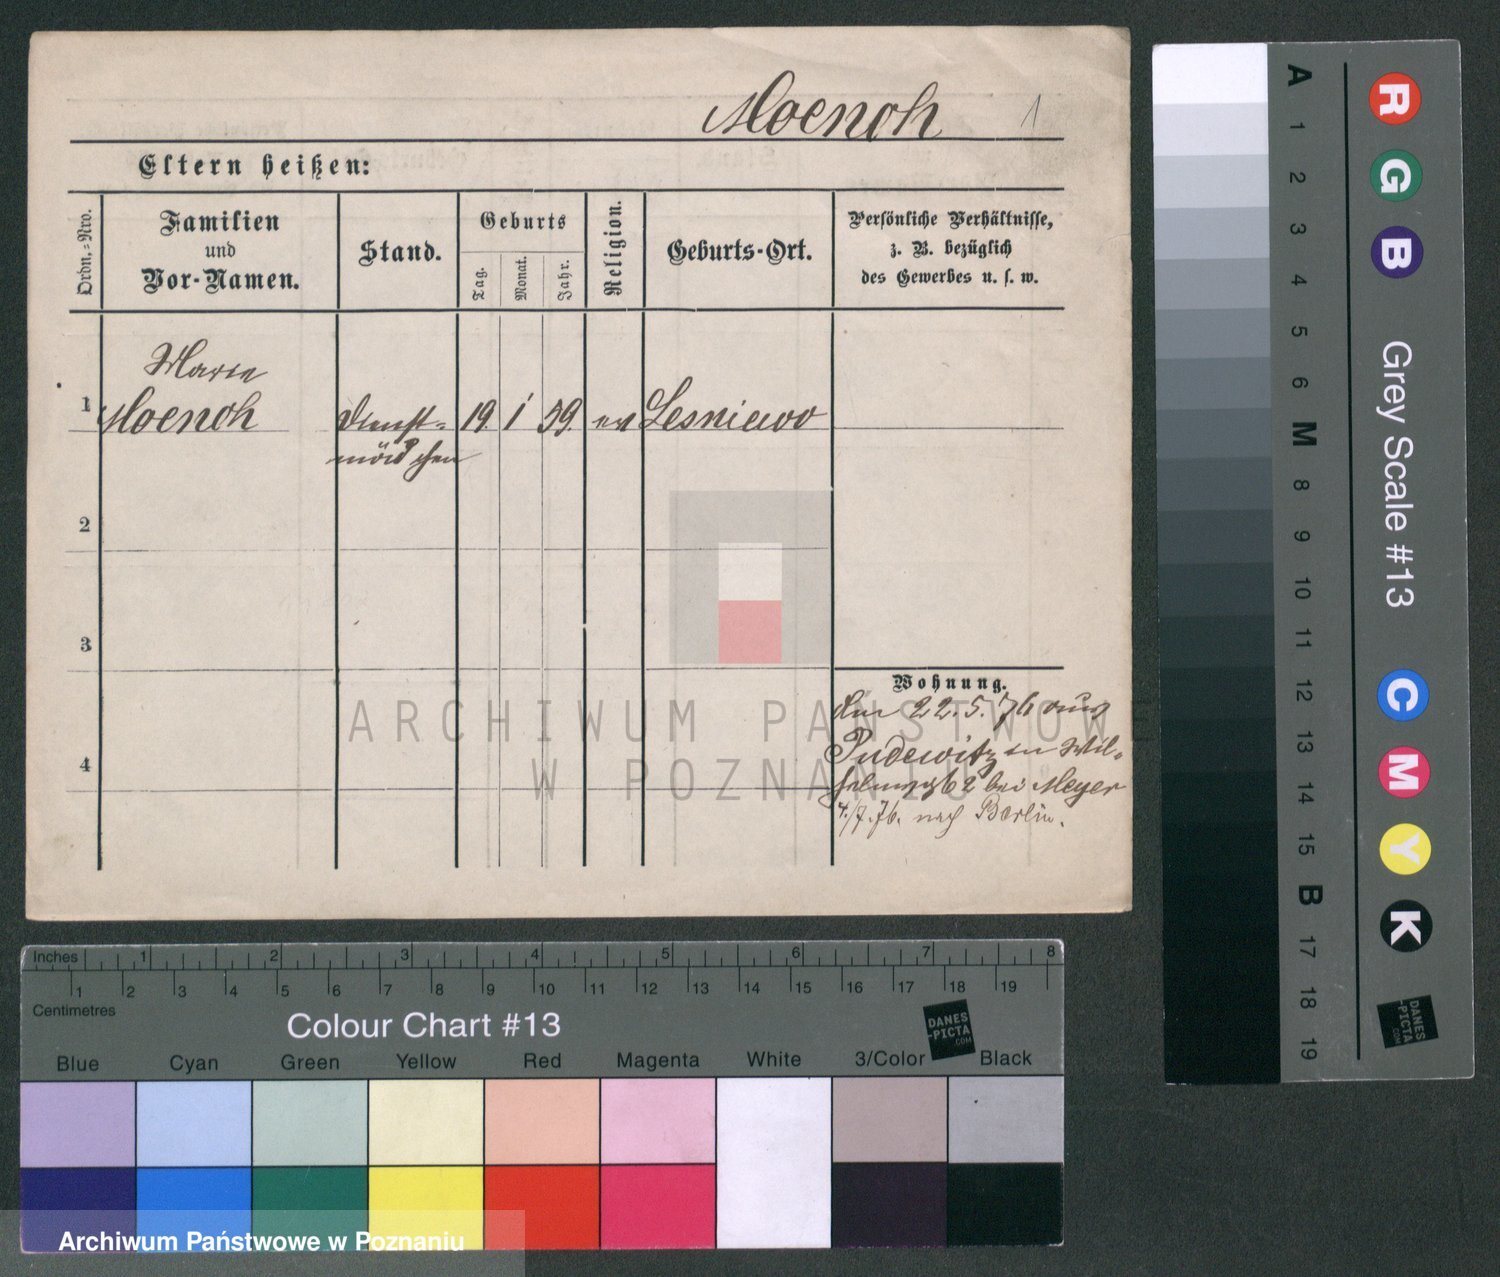 Moench 1
Eltern heißen:
Ordn.=Nro.
Familien
und
Vor-Namen.
Stand.
Geburts
Tag.
Monat.
Jahr.
Religion.
Geburts-Ort.
Persönliche Verhältnisse,
z. B. bezüglich
des Gewerbes u. s. w.
Marie
1 Moench Dienst= 19. 1 59. ev Lesniewo
mädchen
2
3
4
Wohnung.
Den 22.5.76 aus
Pudewitz in Wil=
2 bei Meyer
4./7.76. nach Berlin.
ARCHIWUM PAŃSTWOWE
W POZNANIU
Archiwum Państwowe w Poznaniu
Inches 1 2 3 4 5 6 7 8
1 2 3 4 5 6 7 8 9 10 11 12 13 14 15 16 17 18 19
Centimetres
Colour Chart #13
DANES
-PICTA
.COM
Blue Cyan Green Yellow Red Magenta White 3/Color Black
A 1 2 3 4 5 6 M 8 9 10 11 12 13 14 15 B 17 18 19
R G B Grey Scale #13 C M Y K
DANES
-PICTA
.COM